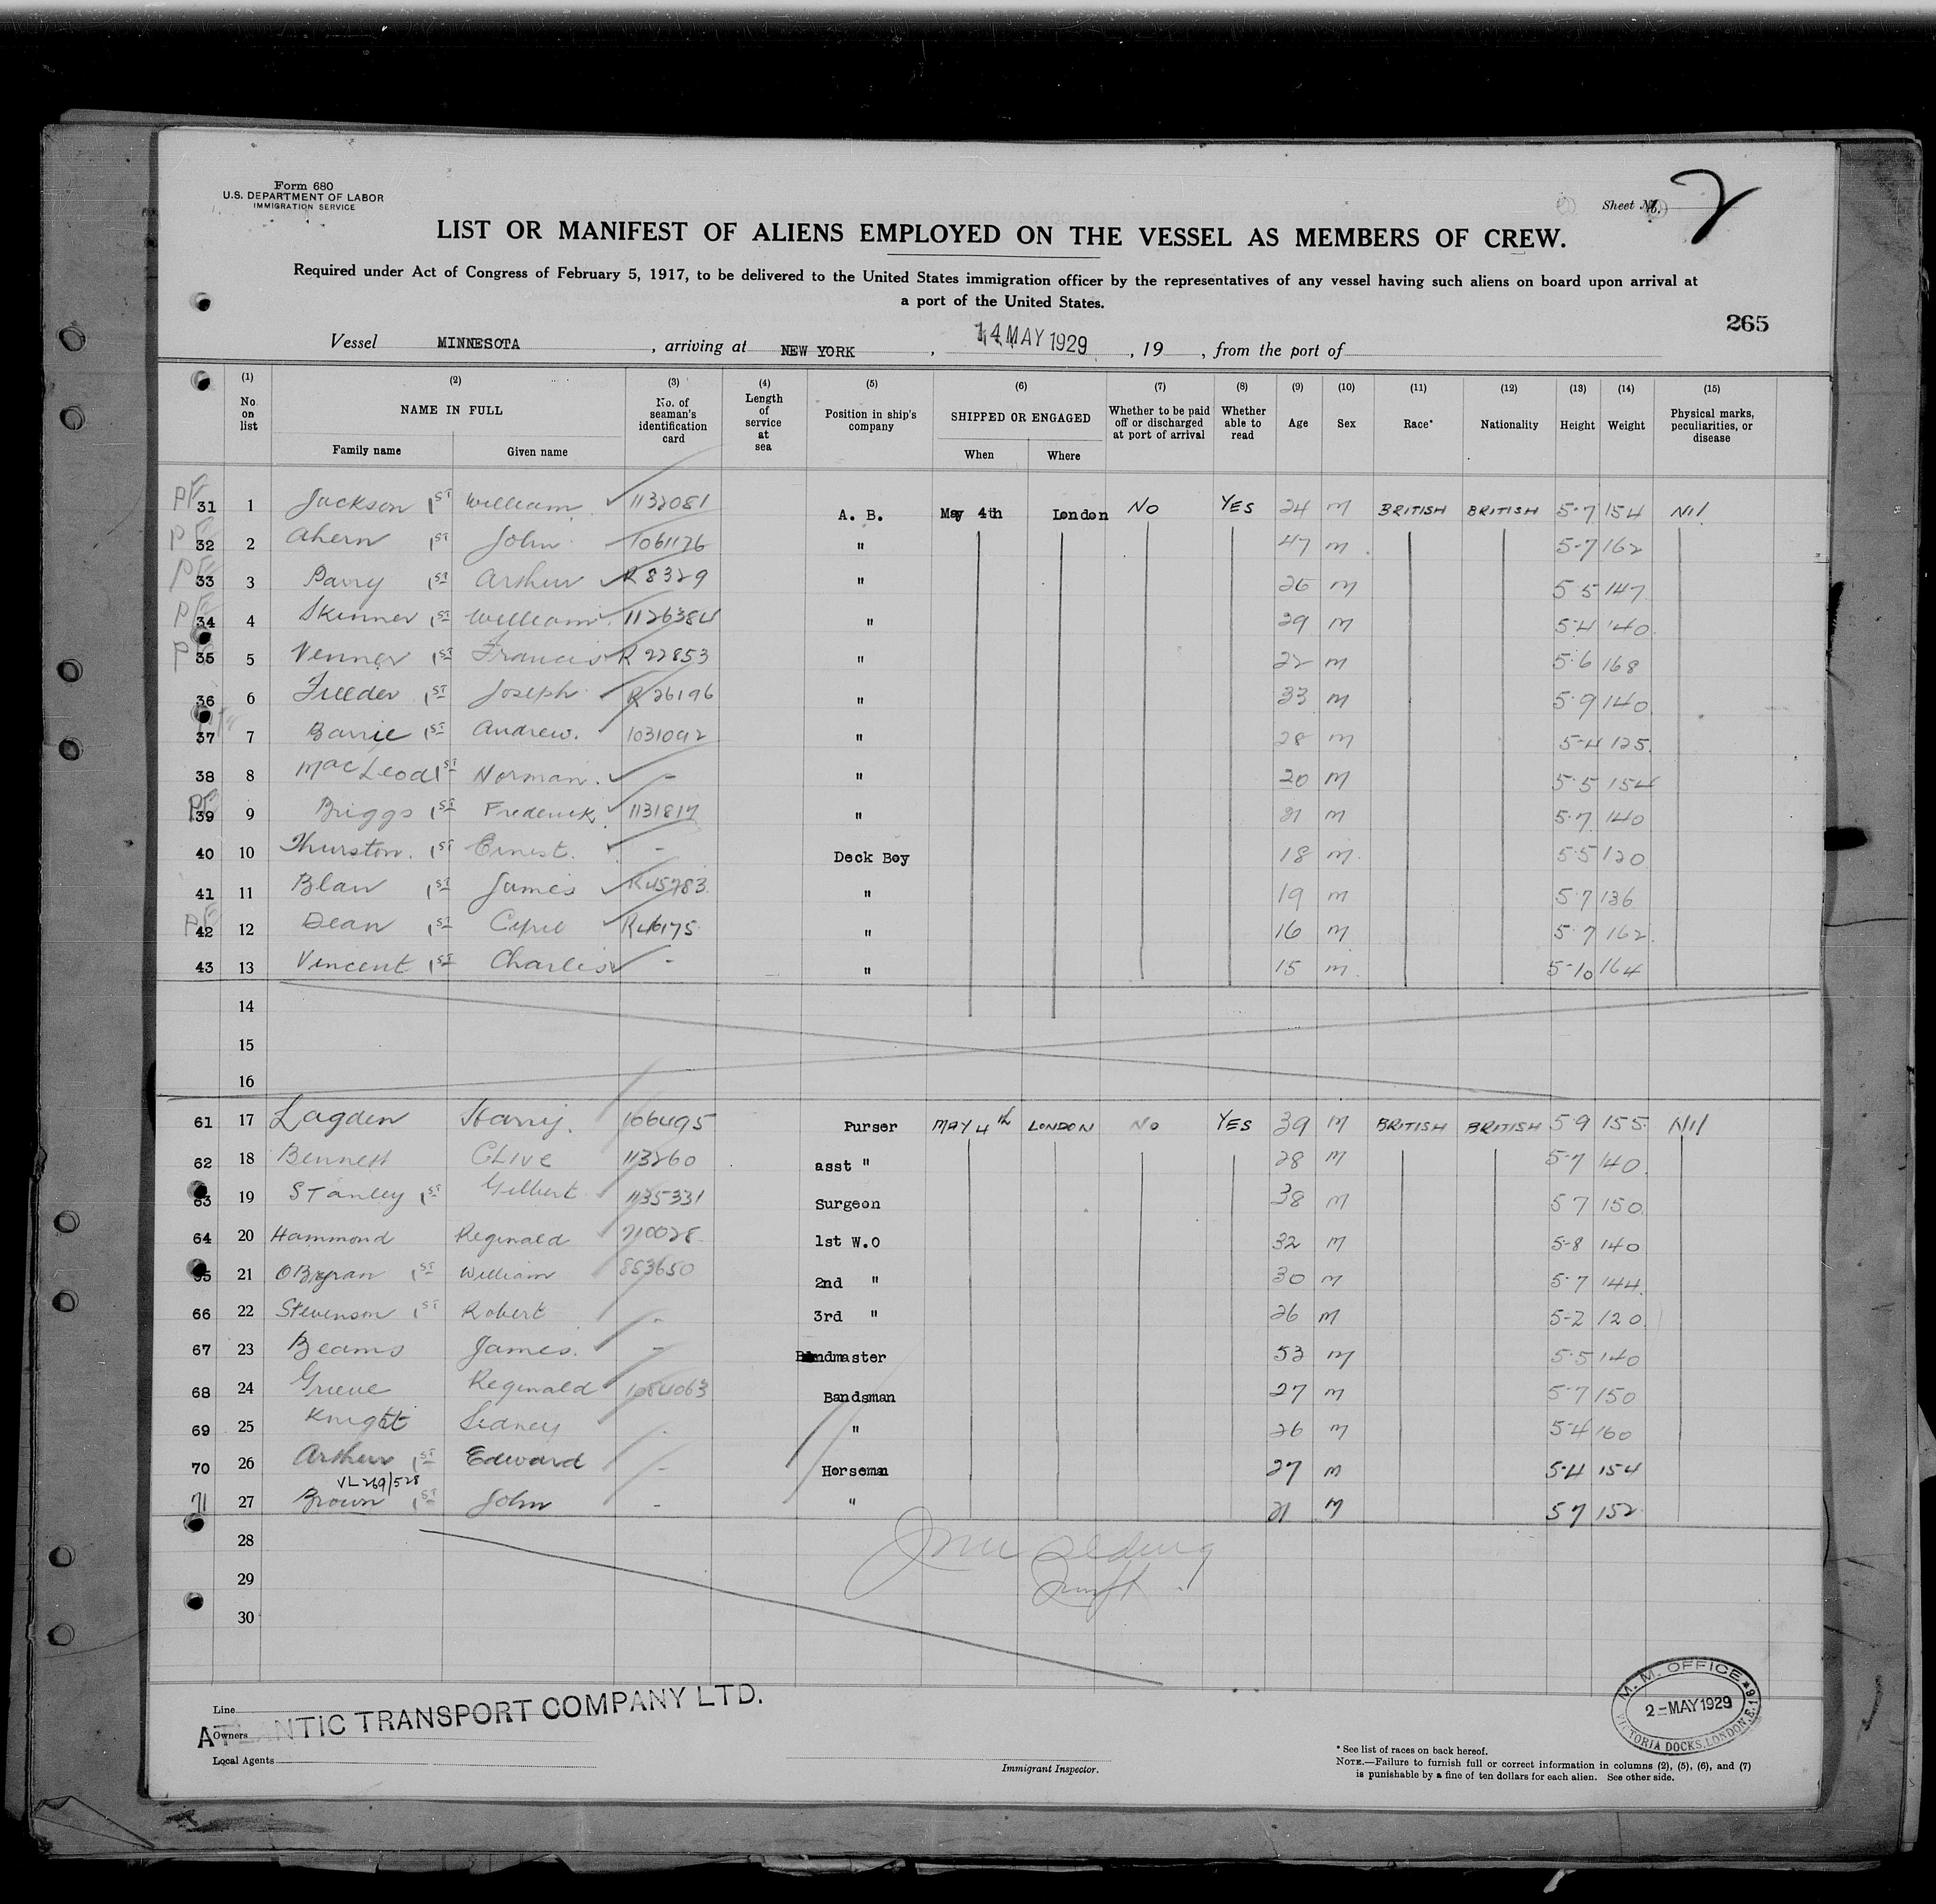 Form 680
U.S. DEPARTMENT OF LABOR
IMMIGRATION SERVICE
Sheet No. 2
LIST OR MANIFEST OF ALIENS EMPLOYED ON THE VESSEL AS MEMBERS OF CREW.
Required under Act of Congress of February 5, 1917, to be delivered to the United States immigration officer by the representatives of any vessel having such aliens on board upon arrival at
a port of the United States.
265
Vessel MINNESOTA , arriving at NEW YORK , 14 MAY 1929 , 19 , from the port of
(1) (2) (3) (4) (5) (6) (7) (8) (9) (10) (11) (12) (13) (14) (15)
No. on list NAME IN FULL Family name Given name No. of seaman's identification card Length of service at sea Position in ship's company SHIPPED OR ENGAGED When Where Whether to be paid off or discharged at port of arrival Whether able to read Age Sex Race* Nationality Height Weight Physical marks, peculiarities, or disease
31 1 Jackson 1st William 1132081 A. B. May 4th London NO YES 24 M BRITISH BRITISH 5-7 154 Nil
32 2 Ahern 1st John 1061126 " 47 M 5-7 162
33 3 Barry 1st Arthur R 8329 " 26 M 5 5 147
34 4 Skinner 1st William 1126384 " 29 M 5-4 140
35 5 Venner 1st Francis R 22853 " 22 M 5-6 168
36 6 1st Joseph R 26196 " 33 M 5-9 140
37 7 Barrie 1st Andrew. 1031092 " 28 M 5-4 125
38 8 MacLeod 1st Norman. - " 20 M 5-5 154
39 9 Briggs 1st Frederick 1131817 " 21 M 5-7 140
40 10 Thurston. 1st Ernest. - Deck Boy 18 M 5-5 120
41 11 1st James R45783 " 19 M 5 7 136
42 12 Dean 1st Cyril R46175 " 16 M 5-7 162
43 13 Vincent 1st Charles - " 15 M 5-10 164
14
15
16
61 17 Lagden Harry. 106495 Purser MAY 4th LONDON No YES 39 M BRITISH BRITISH 5-9 155 Nil
62 18 Bennett CLive 113260 asst " 28 M 5-7 140
63 19 Stanley 1st Gilbert 1135331 Surgeon 38 M 5 7 150
64 20 Hammond Reginald 710028 1st W.O 32 M 5-8 140
65 21 1st William 853650 2nd " 30 M 5-7 144
66 22 Stevenson 1st Robert - 3rd " 26 M 5-2 120
67 23 Beams James. - Bandmaster 53 M 5-5 140
68 24 Grieve Reginald 1084063 Bandsman 27 M 5-7 150
69 25 Knight Sidney - " 26 M 5-4 160
70 26 Arthur 1st Edward - Horseman 27 M 5-4 154
VL 269/528
71 27 Brown 1st John - " 21 M 5 7 152
28
29
30
Line
Owners
ATLANTIC TRANSPORT COMPANY LTD.
Local Agents
Immigrant Inspector.
M. M. OFFICE
2-MAY 1929
VICTORIA DOCKS, LONDON, E.16
* See list of races on back hereof.
NOTE.—Failure to furnish full or correct information in columns (2), (5), (6), and (7)
is punishable by a fine of ten dollars for each alien. See other side.